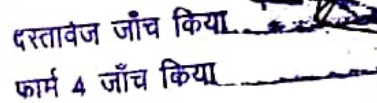 दस्तावेज जाँच किया
फार्म 4 जाँच किया